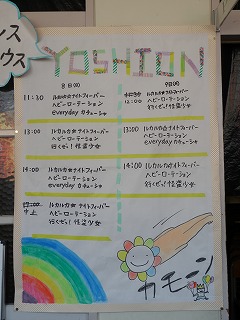 ンス
ウス
YOSHION
8日(土)
9日(日)
11:30 ルカルカ☆ナイトフィーバー
ヘビーローテーション
everyday カチューシャ
12:00
ヘビーローテーション
行くぜっ!怪盗少女
13:00 ルカルカ★ナイトフィーバー
ヘビーローテーション
行くぜっ!怪盗少女
13:00 ルカルカ★ナイトフィーバー
ヘビーローテーション
everyday カチューシャ
14:00 ルカルカ★ナイトフィーバー
ヘビーローテーション
everyday カチューシャ
14:00 ルカルカ★ナイトフィーバー
ヘビーローテーション
行くぜっ!怪盗少女
ルカルカ★ナイトフィーバー
ヘビーローテーション
行くぜっ!怪盗少女
カモーン